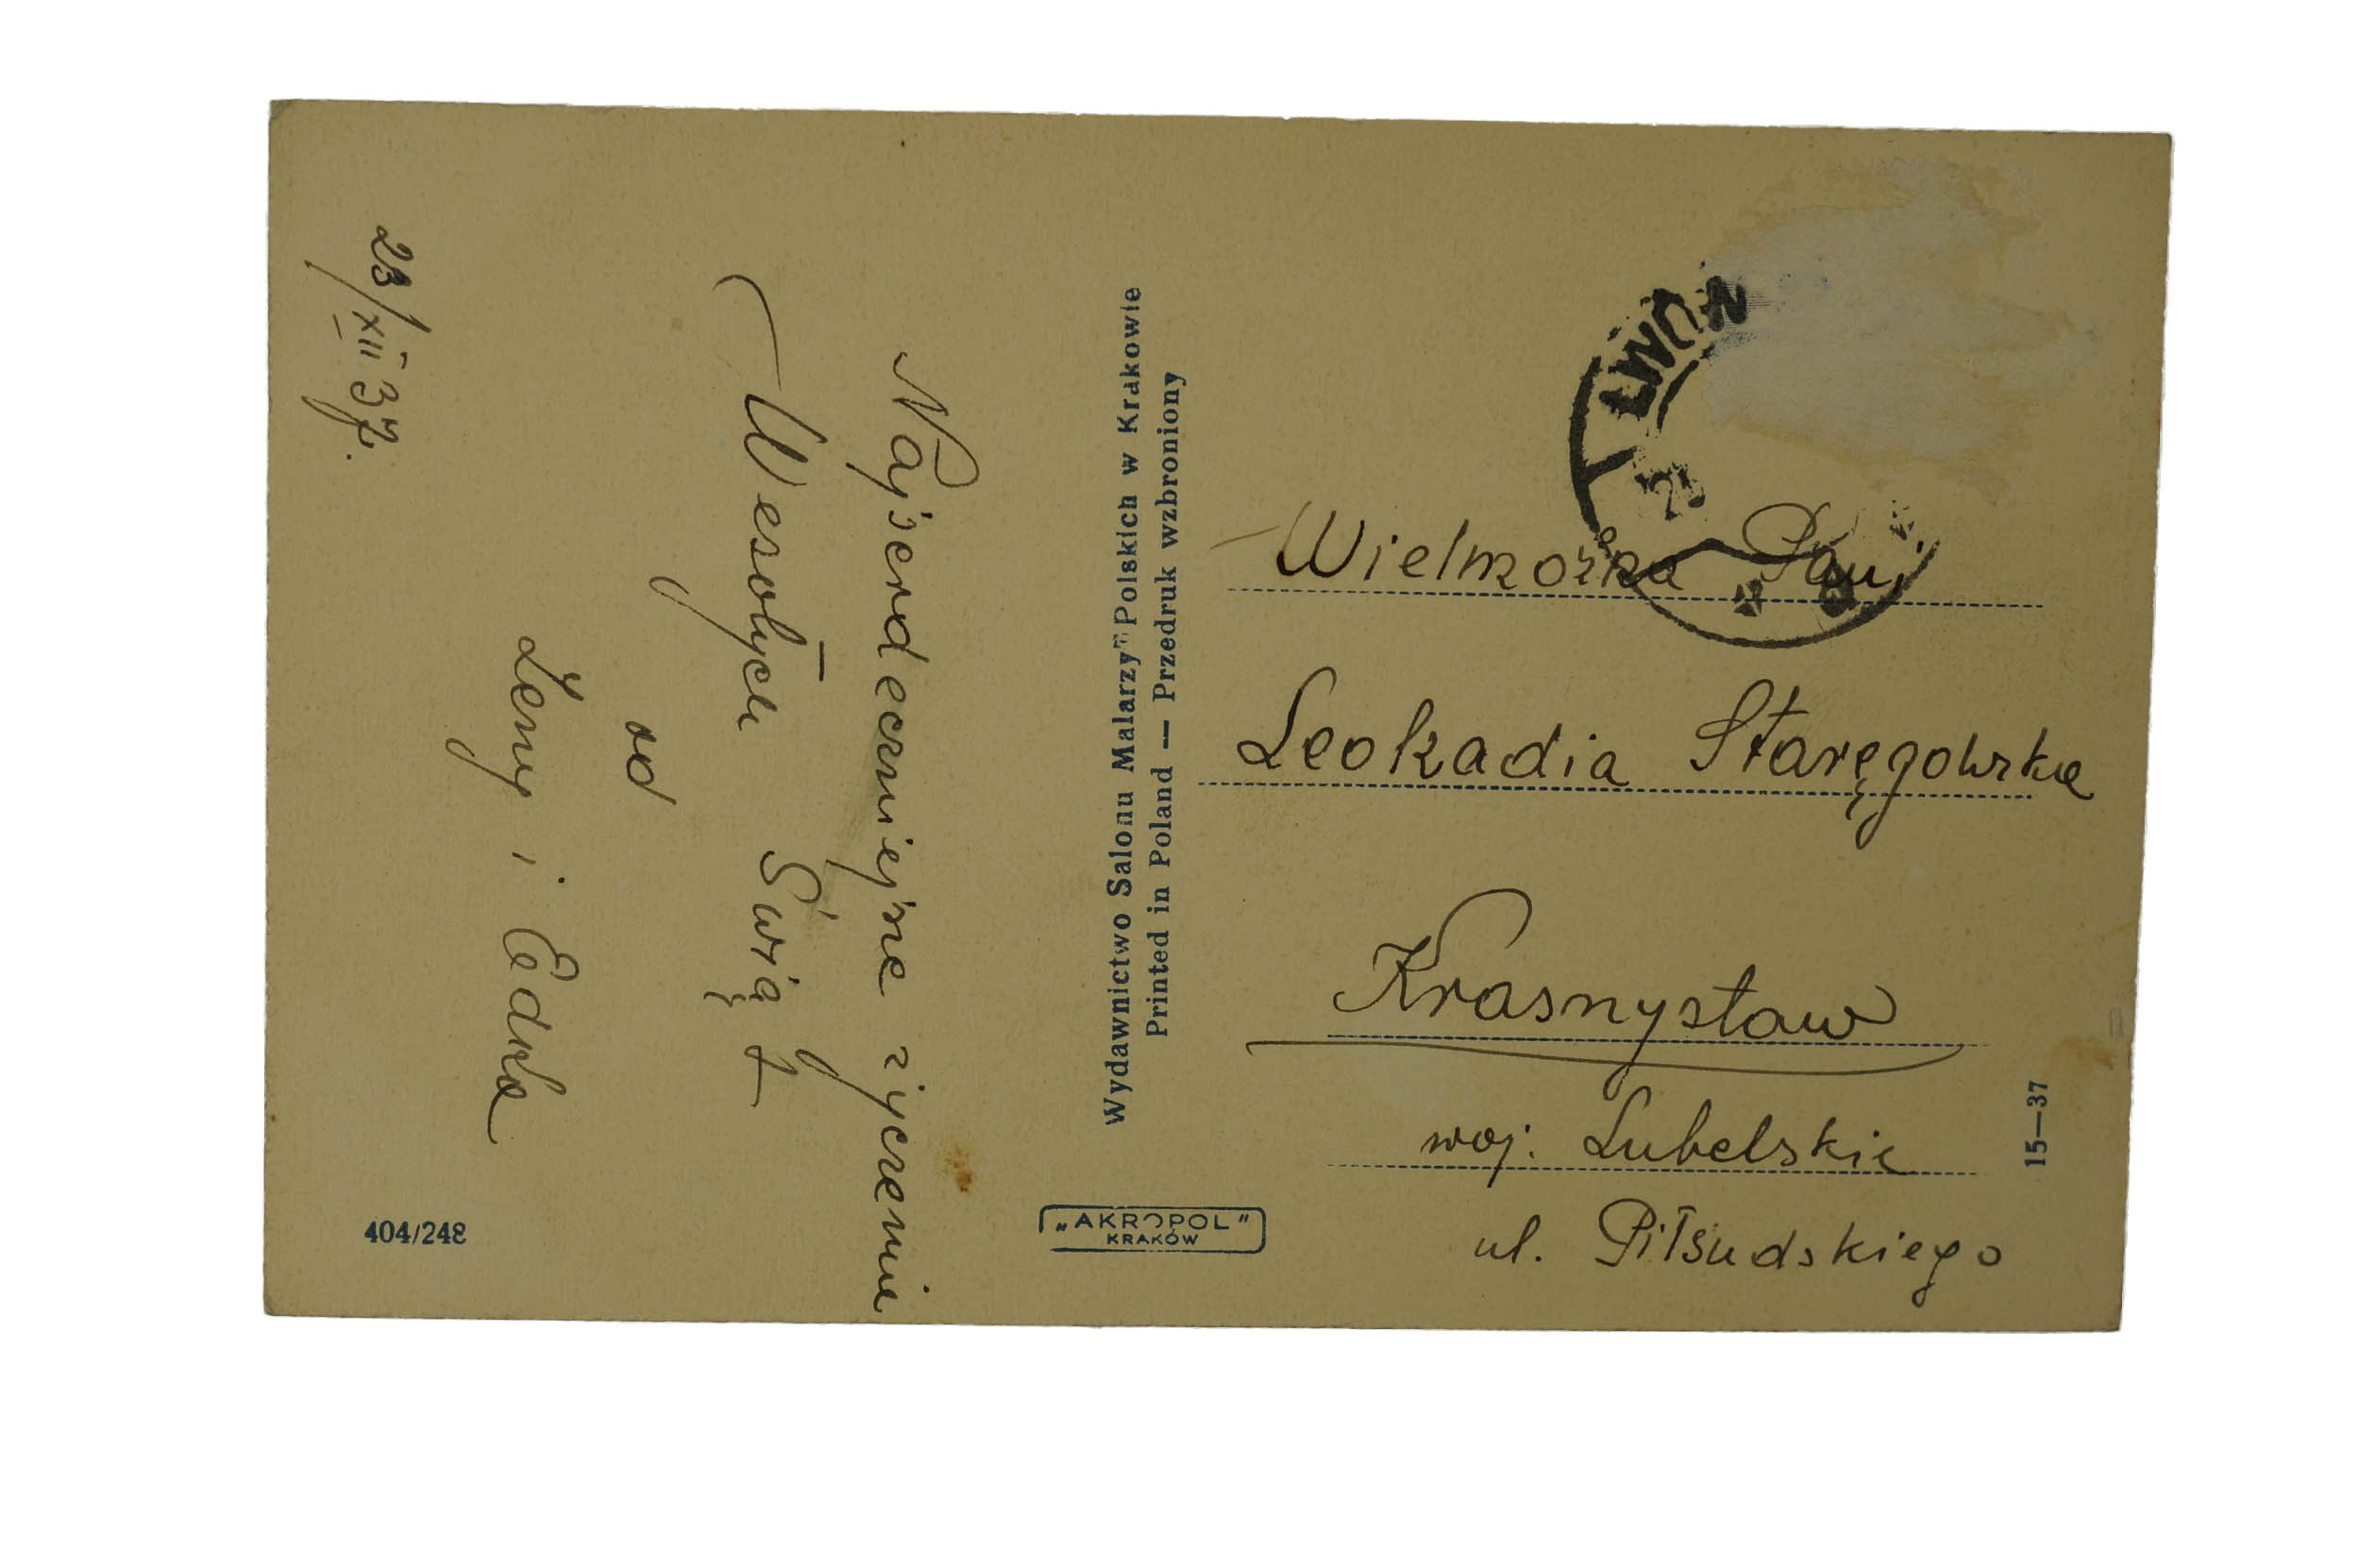 23/XII 37.
Najserdeczniejsze życzenia
Wesołych Świąt
od
i Edka
404/248
Wydawnictwo Salonu Malarzy Polskich w Krakowie
Printed in Poland — Przedruk wzbroniony
„AKROPOL"
KRAKÓW
LWÓW
Wielmożna Pani
Leokadia Staręgowska
Krasnystaw
woj. Lubelskie
ul. Piłsudskiego
15—37